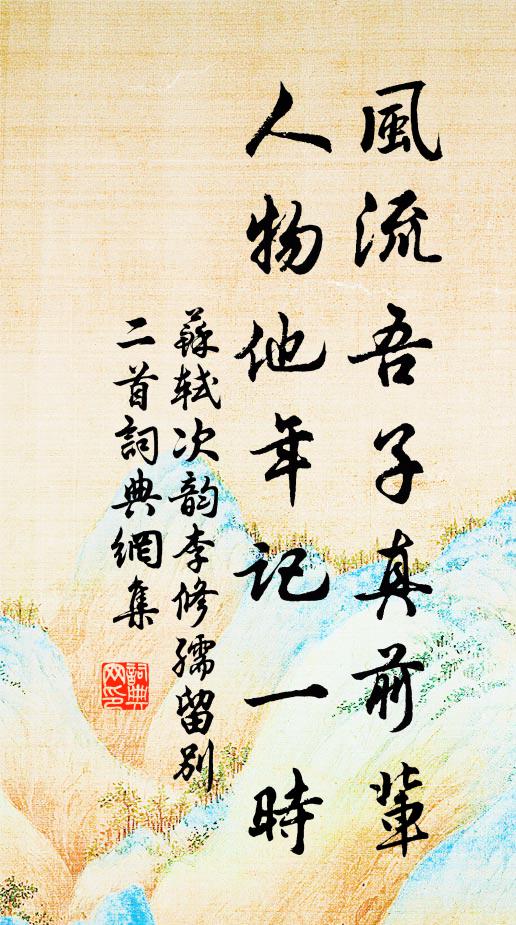 風流吾子真前輩
人物他年記一時
蘇軾次韵李修孺留別
二首詞典網集
詞典
网印